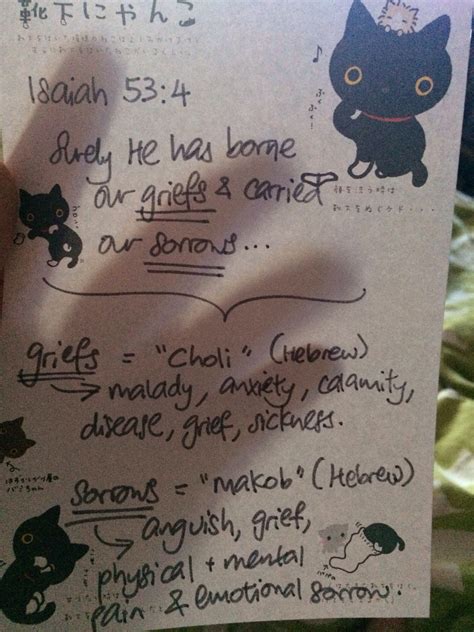 靴下にゃんこ
Isaiah 53:4
Surely He has borne
our griefs & carried
our sorrows...
griefs = "Choli" (Hebrew)
→ malady, anxiety, calamity,
disease, grief, sickness.
sorrows = "makob" (Hebrew)
→ anguish, grief,
physical + mental
pain & emotional sorrow.